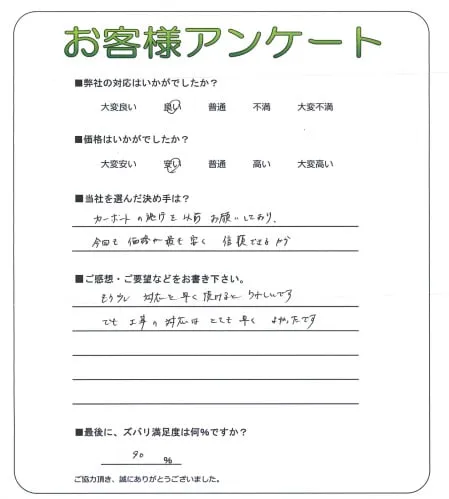 お客様アンケート
■弊社の対応はいかがでしたか?
大変良い 良い 普通 不満 大変不満
■価格はいかがでしたか?
大変安い 安い 普通 高い 大変高い
■当社を選んだ決め手は?
カーポートの施行を以前 お願いしており、
今回も 価格が最も安く 信頼できるから
■ご感想・ご要望などをお書き下さい。
もう少し 対応を早く頂けると うれしいです
でも 工事の対応は とても早く よかったです
■最後に、ズバリ満足度は何%ですか?
90 %
ご協力頂き、誠にありがとうございました。